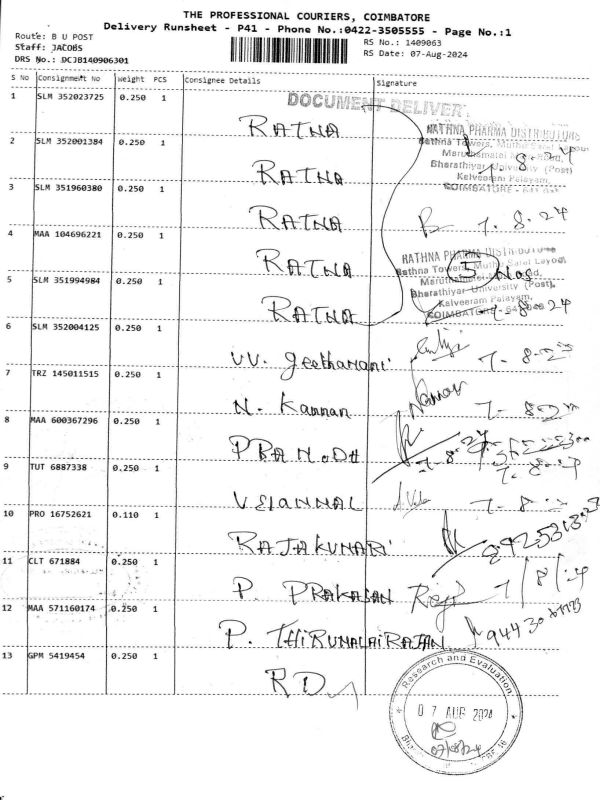 THE PROFESSIONAL COURIERS, COIMBATORE
Delivery Runsheet - P41 - Phone No.:0422-3505555 - Page No.:1
Route: B U POST
RS No.: 1409063
Staff: JACOBS
RS Date: 07-Aug-2024
DRS No.: DCJB140906301
S No Consignment No Weight PCS Consignee Details Signature
DOCUMENT DELIVER
1 SLM 352023725 0.250 1 RATNA
RATHNA PHARMA DISTRIBUTORS
Rathna Towers, Muthu Saral Layout
2 SLM 352001384 0.250 1 RATNA 7.8.24
Bharathiyar University (Post)
Kalveeram Palayam,
COIMBATORE - 641
3 SLM 351960380 0.250 1 RATNA 7.8.24
4 MAA 104696221 0.250 1 RATNA 5 Nos
RATHNA PHARMA DISTRIBUTORS
Rathna Towers, Muthu Saral Layout,
Bharathiyar University (Post),
Kalveeram Palayam,
COIMBATORE - 641
5 SLM 351994984 0.250 1 RATNA 7-8-24
6 SLM 352004125 0.250 1 VV. Geethamani 7-8-2
7 TRZ 145011515 0.250 1 N. Kannan Kannan 7-8-2
8 MAA 600367296 0.250 1 PRAMODH 7-8-24
9 TUT 6887338 0.250 1 VELAMMAL 7-8-
10 PRO 16752621 0.110 1 RAJAKUMARI
11 CLT 671884 0.250 1 P. PRAKASAN 7/8/24
12 MAA 571160174 0.250 1 P. THIRUMALAIRAJAN
13 GPM 5419454 0.250 1 RD
Research and Evaluation
07 AUG 2024
07/8/24